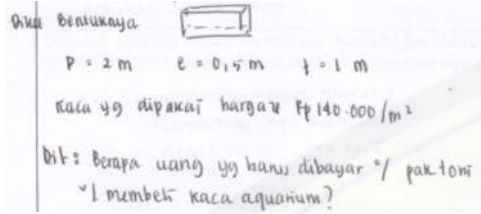 Dik: Bentuknya
P = 2 m l = 0,5 m t = 1 m
Kaca yg dipakai harga Rp 140.000/m²
Dit: Berapa uang yg harus dibayar o/ pak tomi
u/ membeli kaca aquarium?